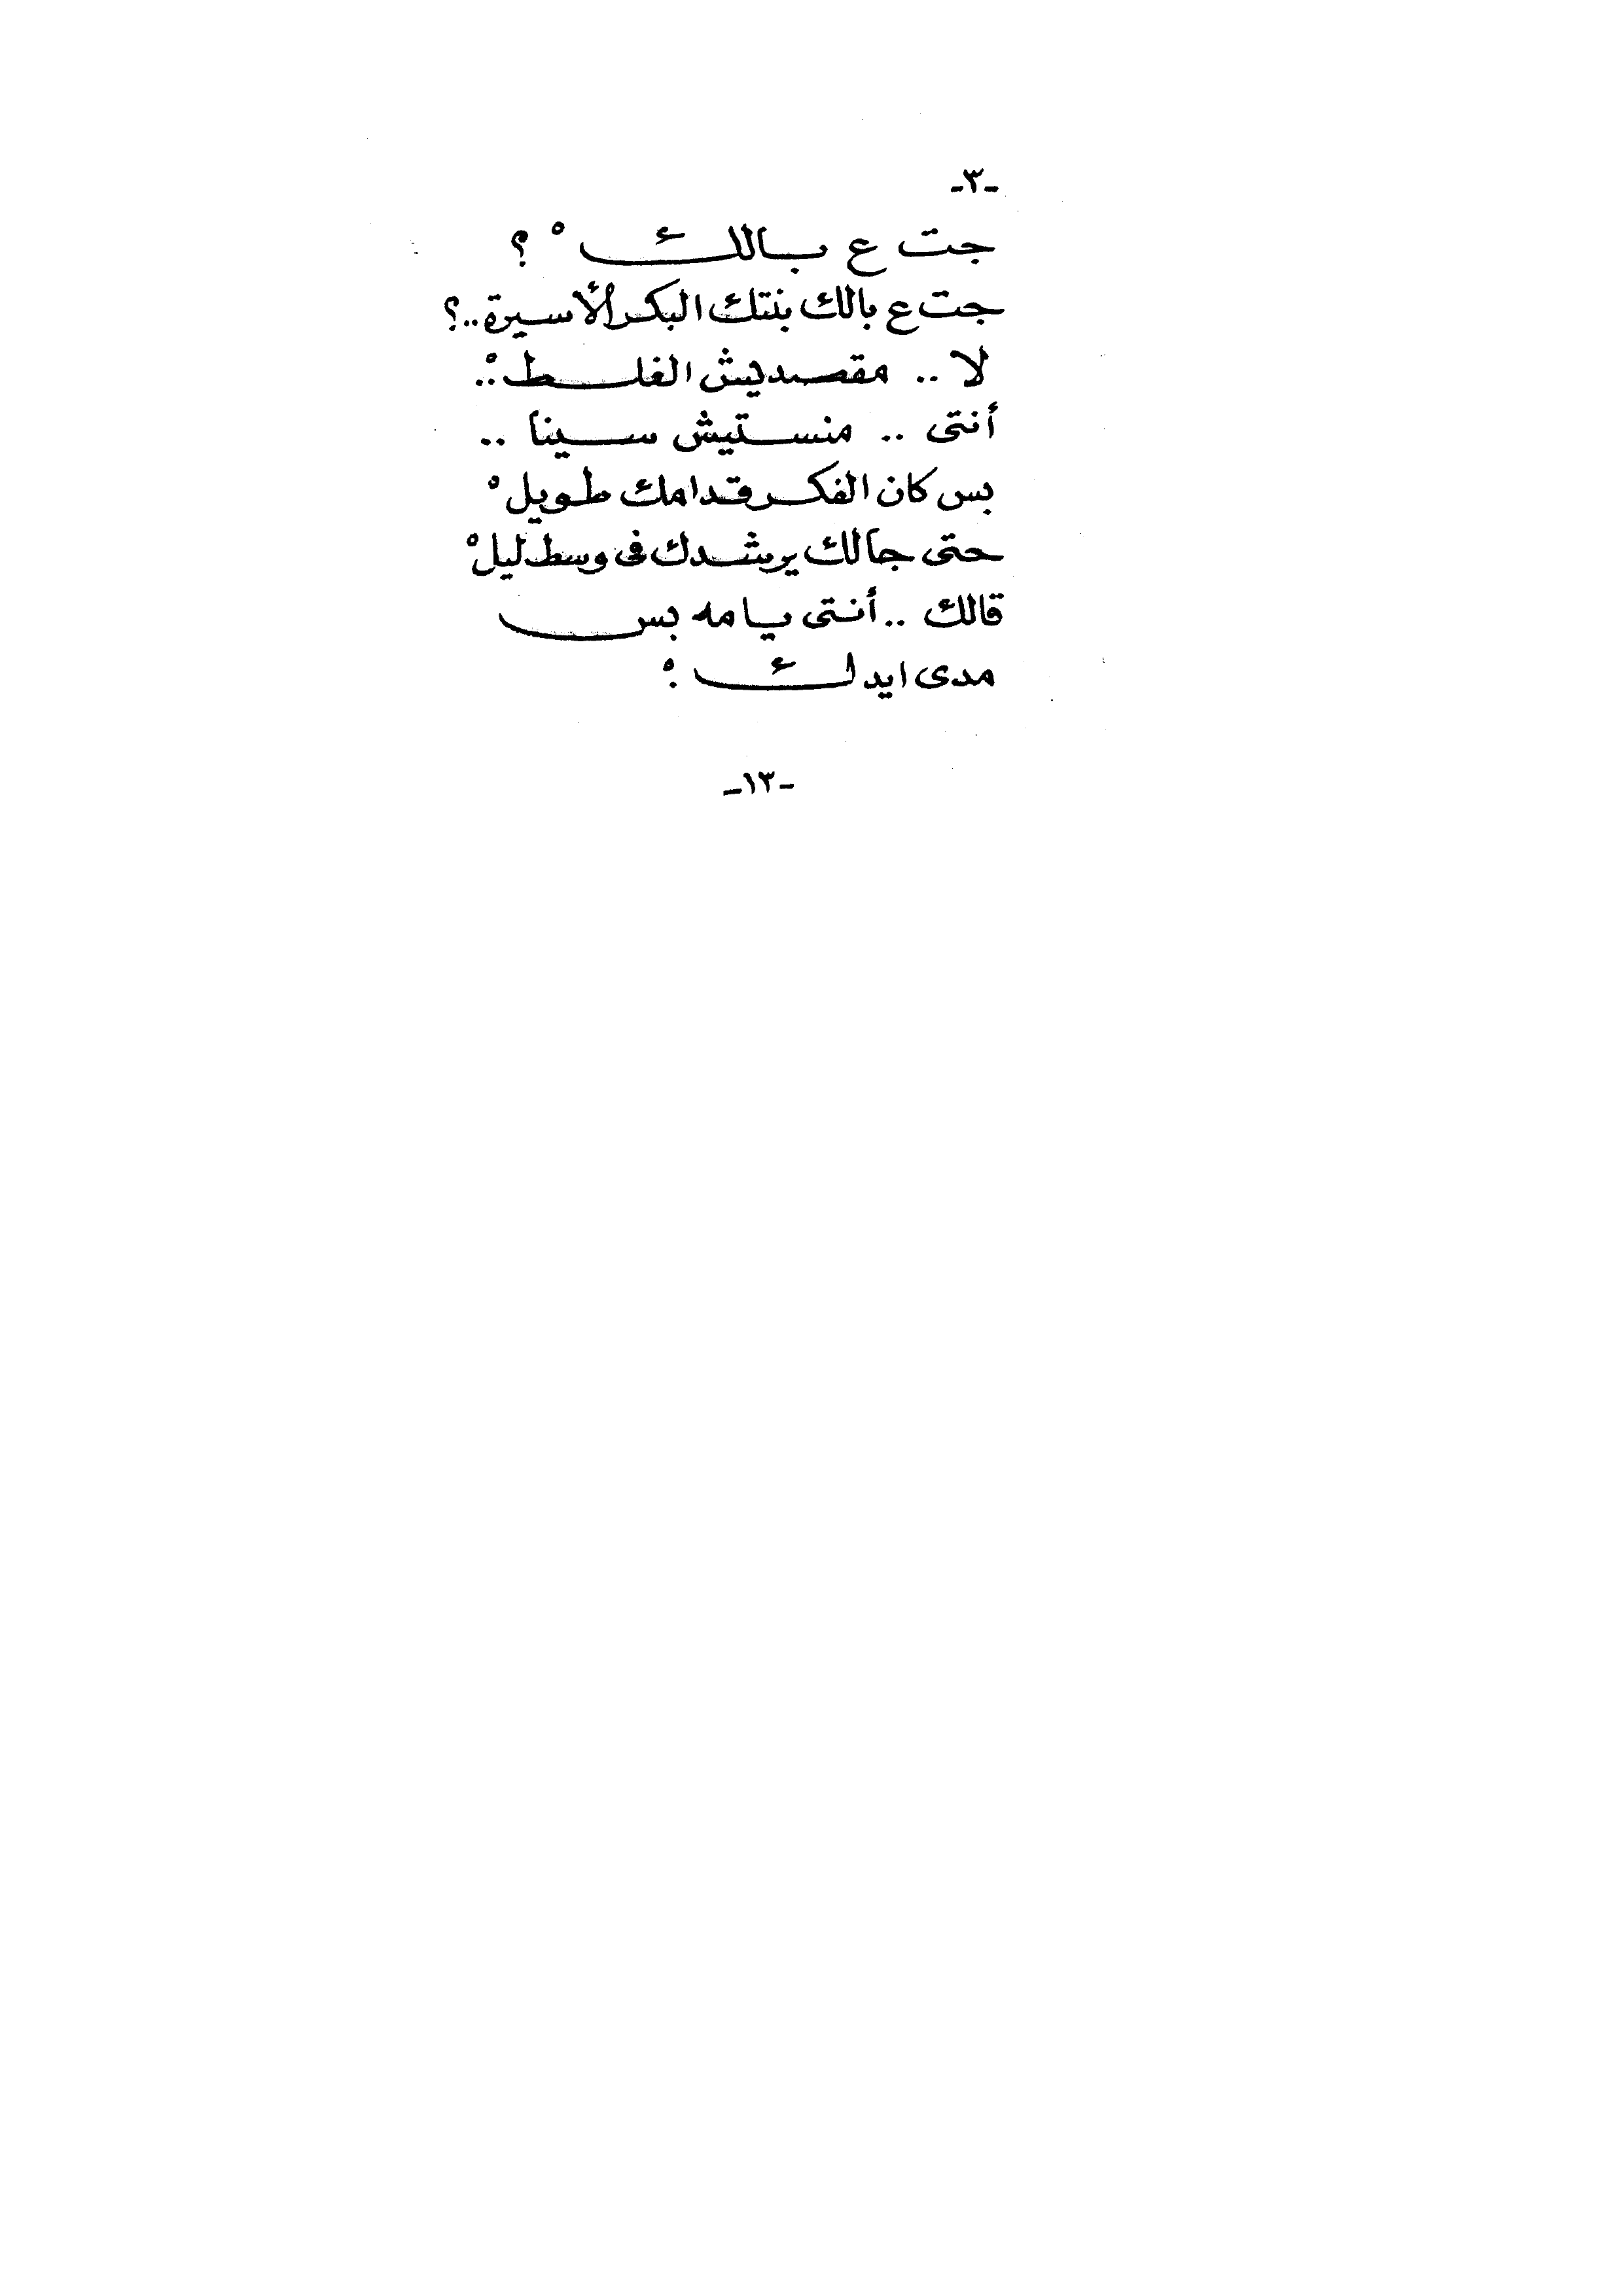 -٣-
جت ع بالكْ ؟
جت ع بالك بنتك البكر الأسيرة..؟
لا .. مقصديش الغلطْ..
أنتى .. منستيش سينا ..
بس كان الفكر قدامك طويلْ
حتى جالك يرشدك فى وسط ليلْ
قالك .. أنتى يا مه بس
مدى ايدكْ .
-١٣-